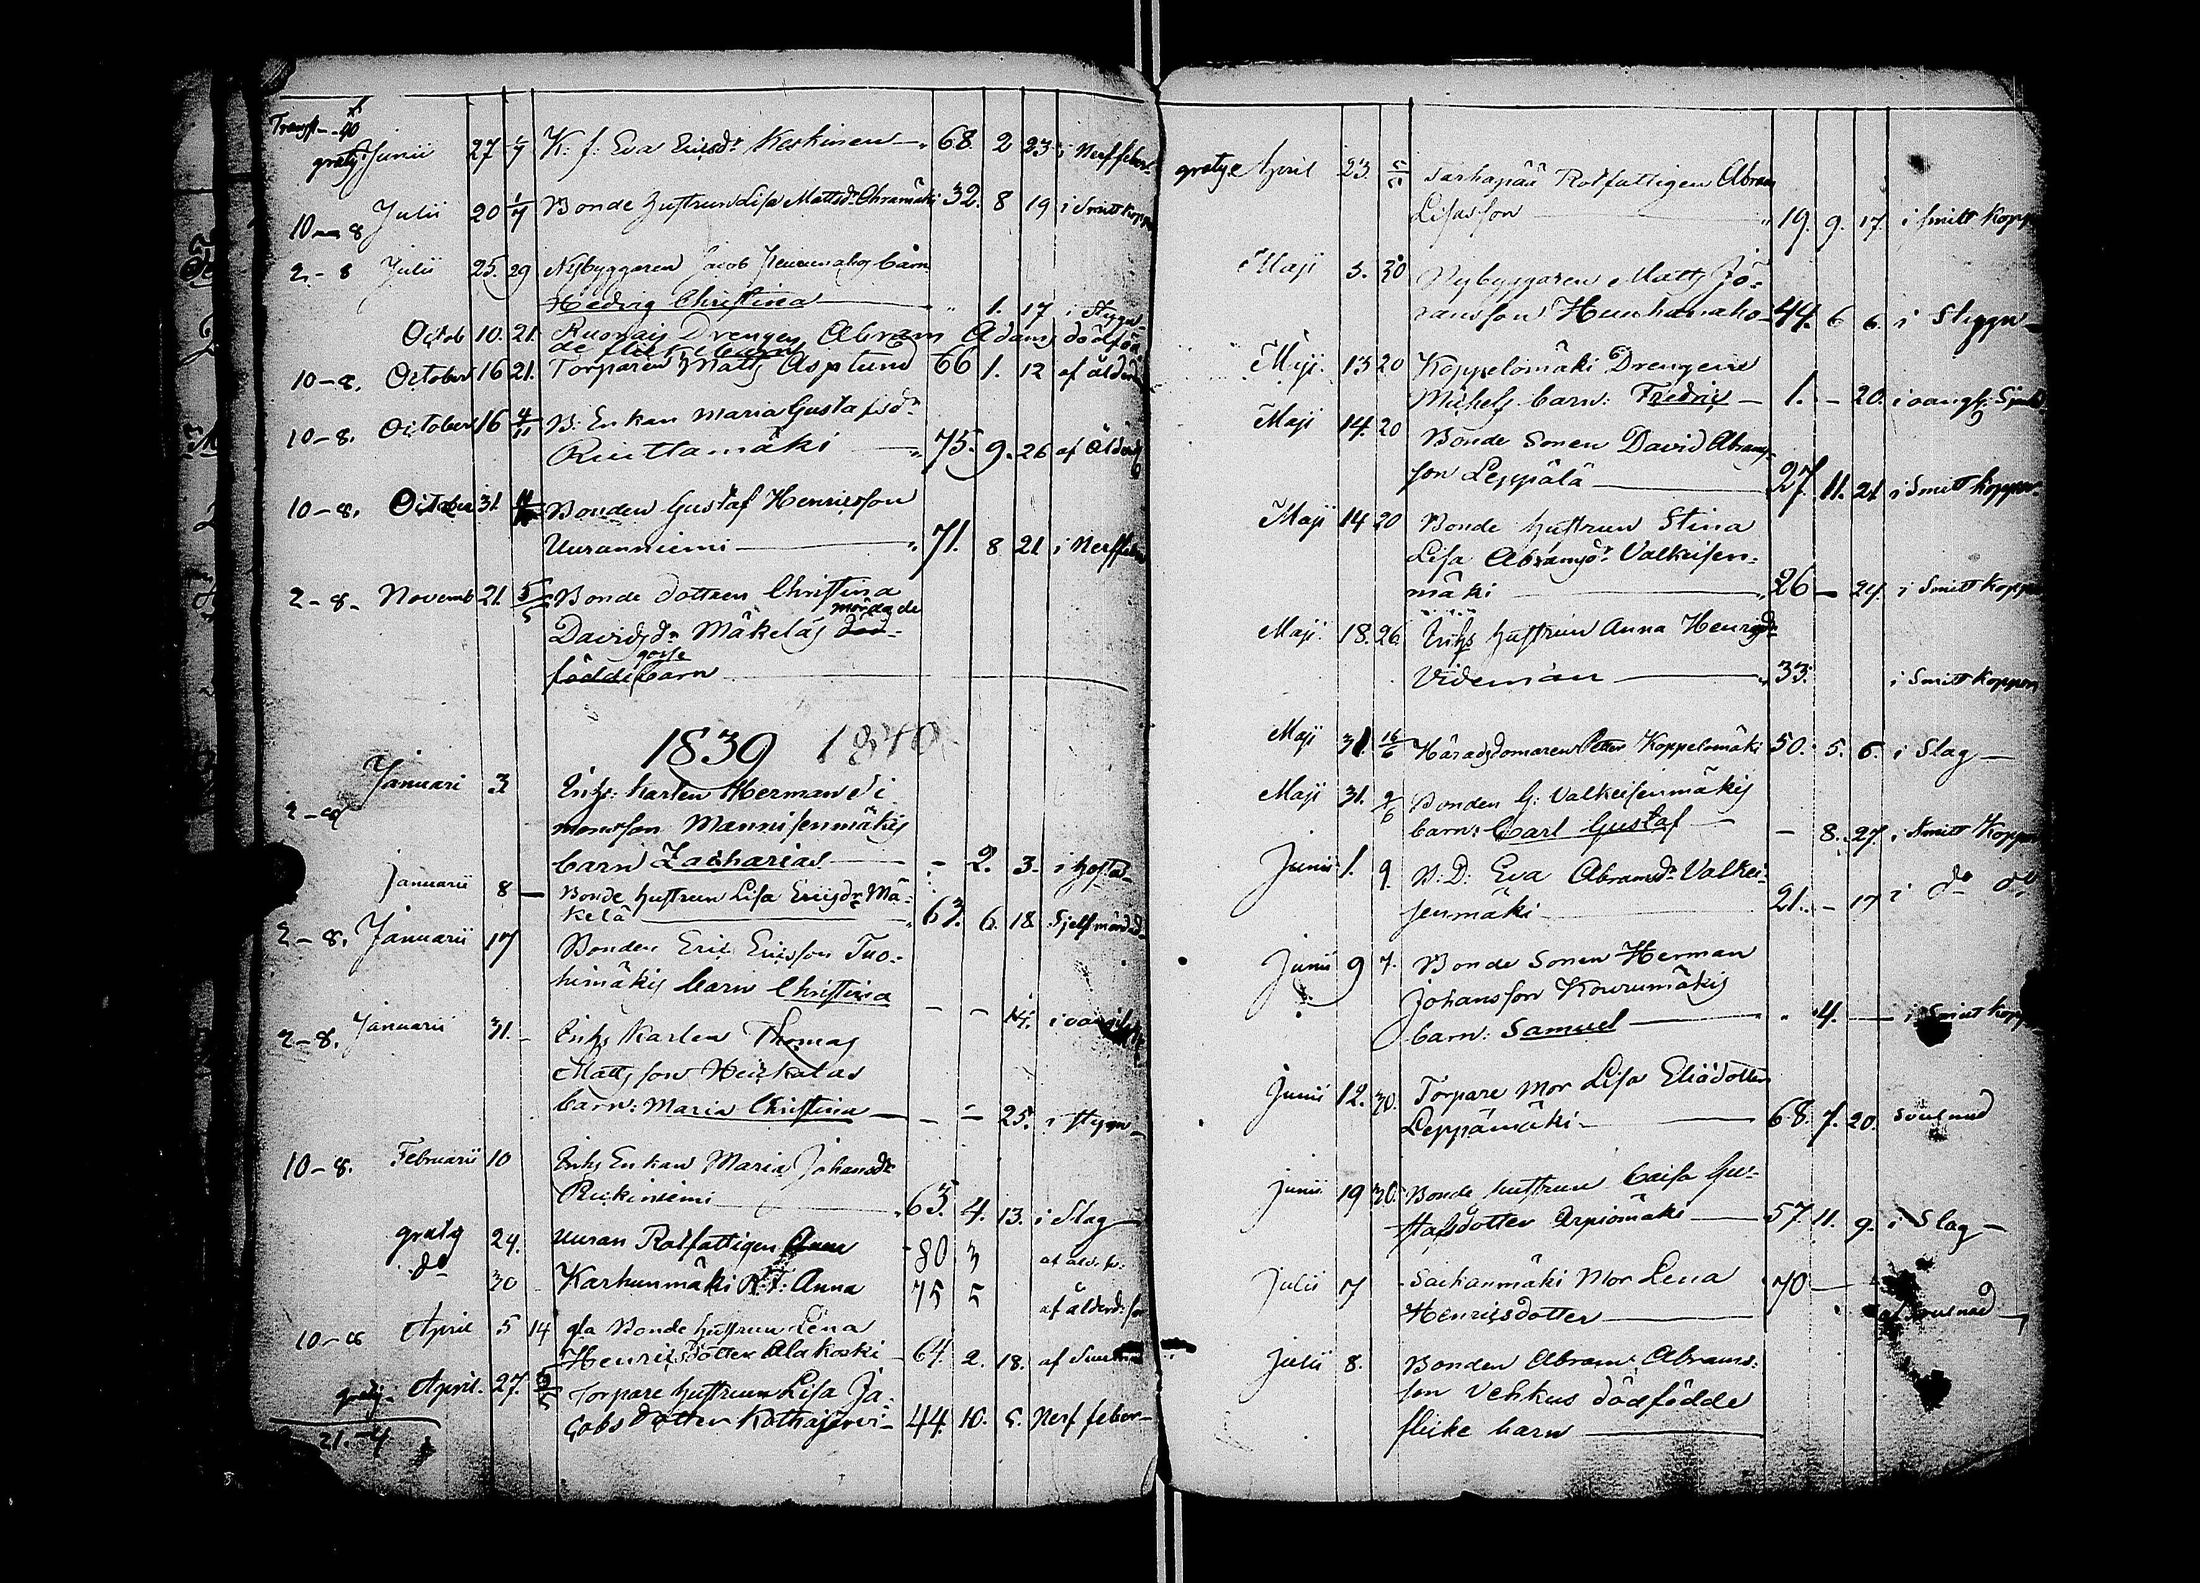 Transp. - - 40
gratis Junii 27 1/7 K: f: Eva Ericsdr Keskinen — 68 2 23 i Nerffeber
10—8 Julii 20 1/7 Bonde hustrun Lisa Mattsdr Ohramäki 32. 8 19 i Smittkoppor
2-8 Julii 25. 29 Nybyggaren Jacob barn
Hedvig Christina — " 1. 17 i Stygn
Octob 10. 21. Drengen Abram Adams dödföd
de flickebarn
10-8. October 16 21. Torparen Matts Asplund 66 1. 12 af ålderd
10-8. October 16 4/11 B: Enkan Maria Gustafsdr
Ruuttamäki — " 75. 9. 26 af Ålderd
10-8. October 31. Bonden Gustaf Henricsson
Uuranniemi — " 71. 8 21 i Nerffeber
2-8- Novemb 21. 5/ Bonde dottren Christina
mördade
Davidsdr Mäkeläs död-
gosse
födde barn —
1839 1840
Januari 3 Inhs: karlen Herman Si
2-8 monsson Mannisenmäkis
barn Zacharias — - 2. 3- i hosta-
Januarii 8 — Bonde hustrun Lisa Ericsdr Mä-
kelä — 63. 6. 18. Sjelfmördad
2-8. Januarii 17 Bonden Eric Ericsson Tuo-
himäkis barn Christina — — 14. i
2-8. Januarii 31. - Inhs karlen Thomas
Mattsson Heickalas
barn: Maria Christina — — — 25. i stygn-
10-8. Februarii 10 Inhs Enkan Maria Johansdr
Ruckiniemi — 63. 4. 13. i Slag
gratis 24. Uuran Rotfattigen Anna - 80 3 af
do 30 Karhunmäki R: F: Anna 75 5 af ålderd:
10-8 April 5 14 gla Bonde hustrun Lena
Henricsdotter Alakoski — 64. 2. 18. af
gratis- April. 27. Torpare hustrun Lisa Ja-
cobs dotter Kathajärvi- 44. 10. 5. Nerf feber-
21.-4
gratis April 23. Tarhapää Rotfattigen Abram
Lisasson — " 19. 9. 17. i Smitt Kopp
Maji 3. 30 Nybyggaren Matts Jö-
ransson Heinhamaho- 44. 6 6. i Stygn-
Maji. 13 20 Koppelomäki Drengens
Michels barn: Fredric — 1. - 20. i
Maji 14. 20 Bonde Sonen David Abrams-
son Leppälä — 27. 11. 21 i Smitt koppor.
Maji 14 20 Bonde hustrun Stina
Lisa Abramsdr Valkeisen-
mäki — " 26 — 24. i Smitt koppor
Maji. 18. 26. Inhs hustrun Anna Henrsdr
Videman — " 33: i Smitt koppor
Maji 31. 16/6 Häradsdomaren Petter Koppelomäki 50. 5. 6. i Slag —
Maji 31. 9/6 Bonden G: Valkeisenmäkis
barn: Carl Gustaf — — 8. 27. i Smitt Koppor
Junii 1. 9. B: D: Eva Abramsdr Valkei-
senmäki — 21. - 17 i do do
Junii 9 7. Bonde Sonen Herman
Johansson Kourumäkis
barn: Samuel — " 4. — i Smitt kopp
Junii 12. 30. Torpare Mor Lisa Eliædotter
Leppämäki — 68. 7. 20. svulnad
Junii 19 30. Bonde hustrun Caisa Gus-
tafsdotter Arpiomäki — 57. 11. 9. i Slag —
Julii 7 Sarkanmäki Mor Lena 70 —
Henricsdotter — af svulnad —
Julii 8. Bonden Abram Abrams-
son Vehkus dödfödde
flicke barn —